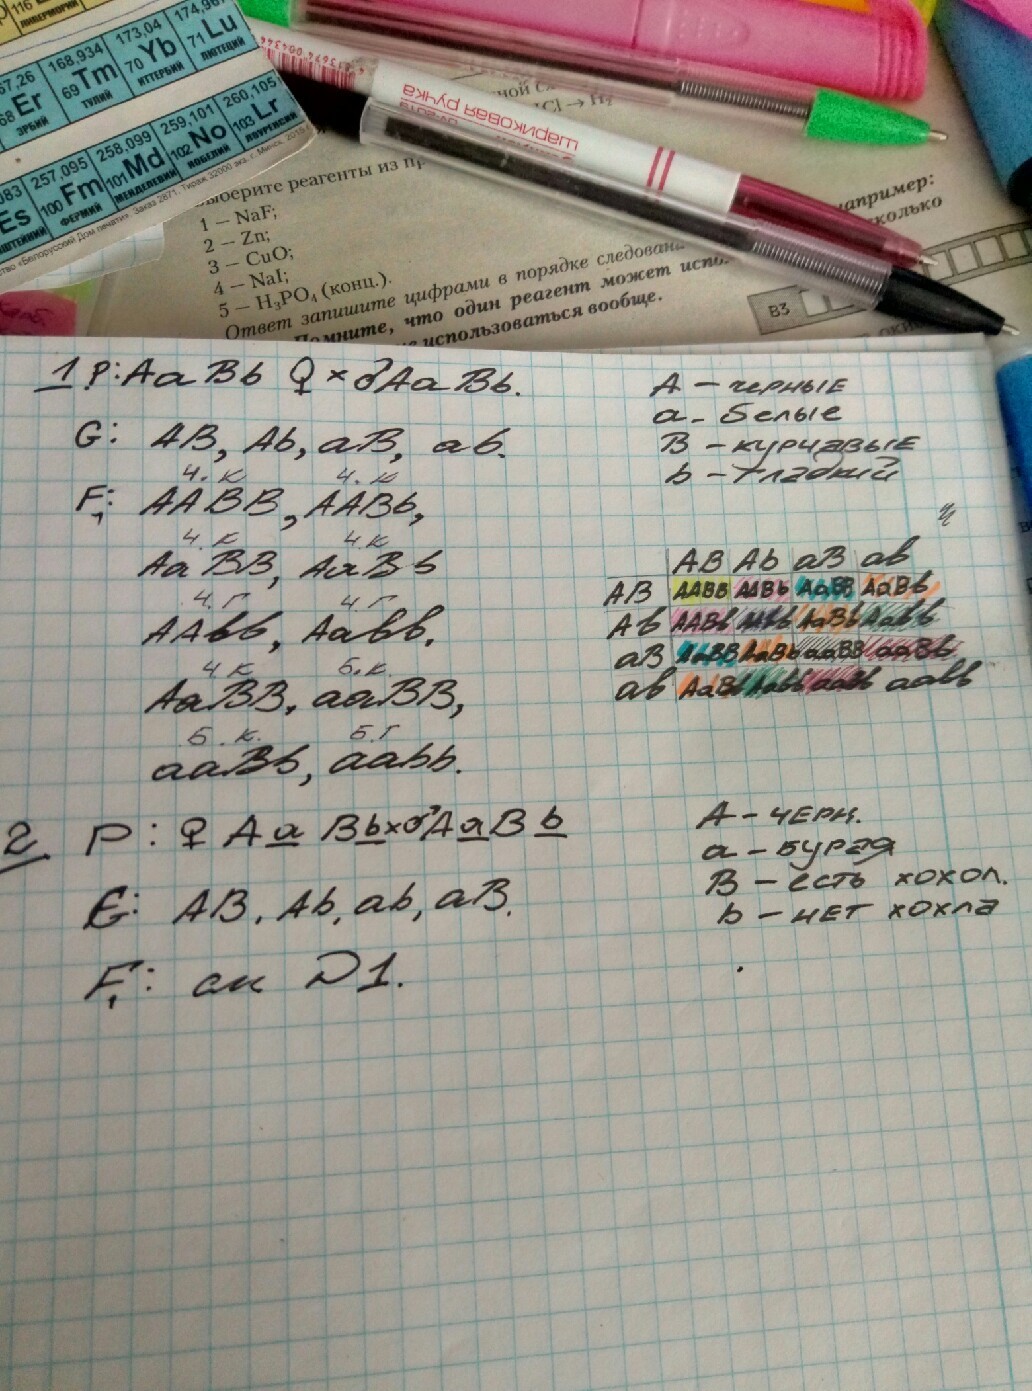 116
ЛИВЕРМОРИЙ
67,26
68 Er
ЭРБИЙ
168,934
69 Tm
ТУЛИЙ
173,04
70 Yb
ИТТЕРБИЙ
174,967
71 Lu
ЛЮТЕЦИЙ
Es
257,095
100 Fm
ФЕРМИЙ
258,099
101 Md
МЕНДЕЛЕВИЙ
259,101
102 No
НОБЕЛИЙ
260,105
103 Lr
ЛОУРЕНСИЙ
«Белорусский Дом печати». Заказ 2871. Тираж 32000 экз. г. Минск
шариковая ручка
ыберите реагенты из пр
1 – NaF;
2 – Zn;
3 – CuO;
4 – NaI;
5 – H₃PO₄ (конц.).
Ответ запишите цифрами в порядке следован
омните, что один реагент может испо
использоваться вообще.
апример:
В3
1 P: AaBb ♀ × ♂AaBb.
G: AB, Ab, aB, ab.
Ч.К Ч.К
F₁: AABB, AABb,
Ч.К Ч.К
AaBB, AaBb
Ч.Г Ч.Г
AAbb, Aabb,
Ч.К Б.К.
AaBB, aaBB,
Б.К. Б.Г
aaBb, aabb.
A – черные
a – Белые
B – курчавые
b – гладкий
AB Ab aB ab
AB AABB AABb AaBB AaBb
Ab AABb AAbb AaBb Aabb
aB AaBB AaBb aaBB aaBb
ab AaBb Aabb aaBb aabb
2 P: ♀ Aa Bb×♂AaBb
G: AB, Ab, ab, aB.
F₁: см №1.
A – черн.
a – бурая
B – есть хохол.
b – нет хохла